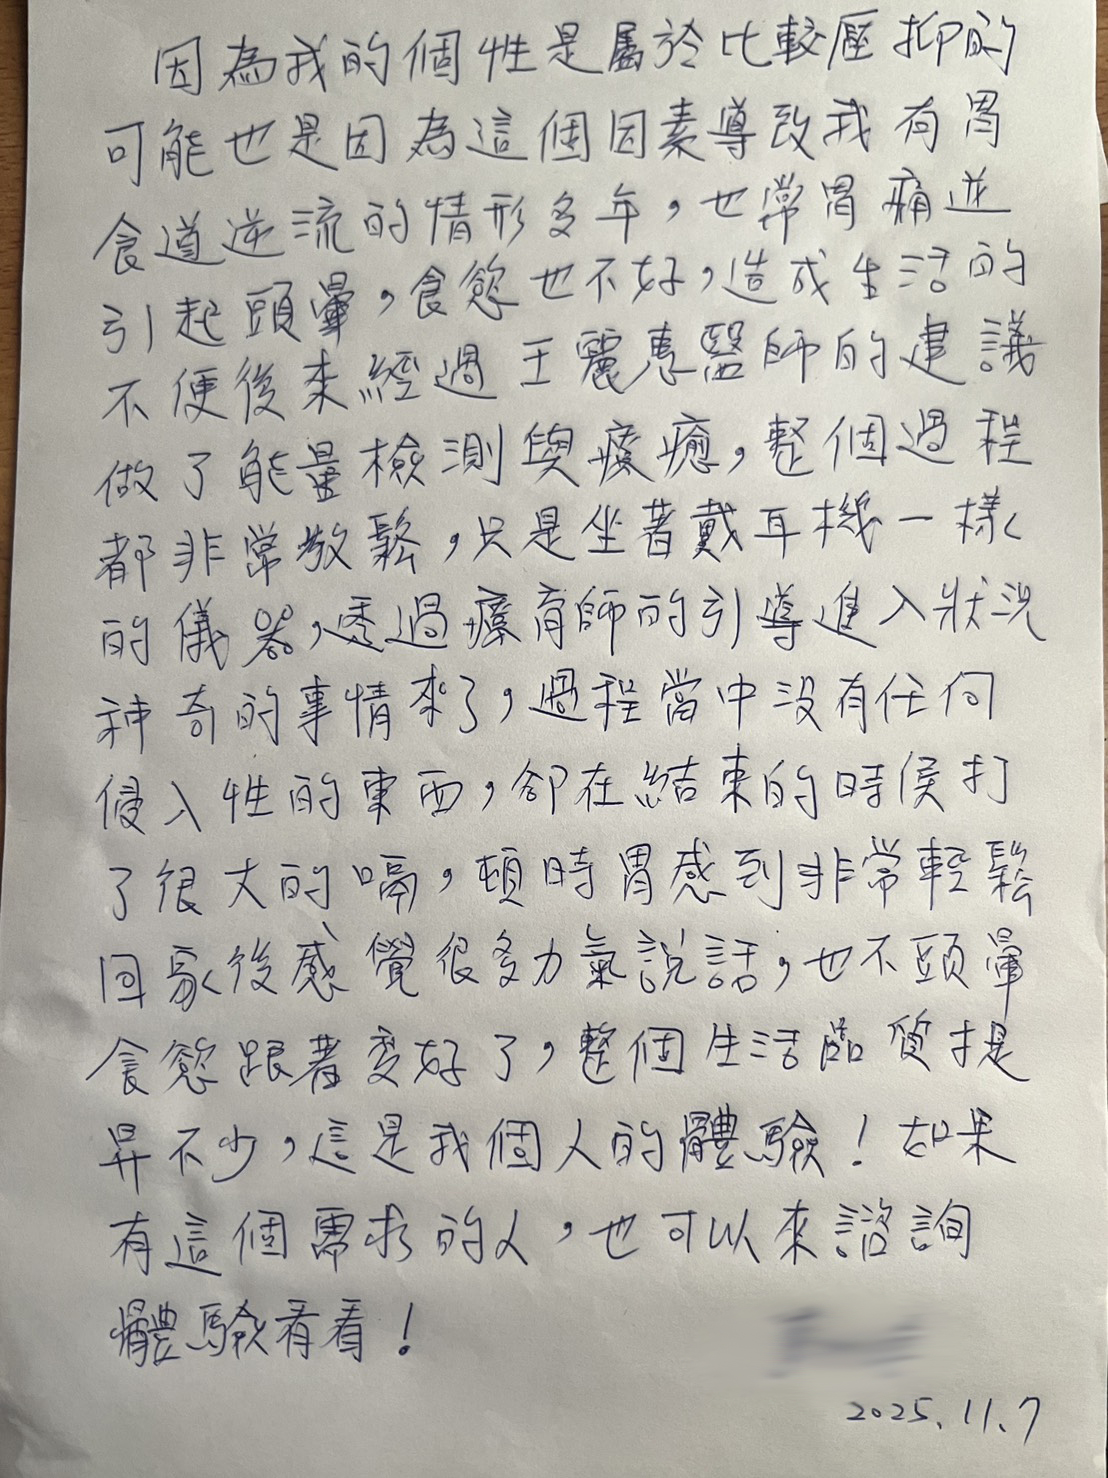 因為我的個性是屬於比較壓抑的
可能也是因為這個因素導致我有胃
食道逆流的情形多年，也常胃痛並
引起頭暈，食慾也不好，造成生活的
不便後來經過王麗惠醫師的建議
做了能量檢測與療癒，整個過程
都非常放鬆，只是坐著戴耳機一樣
的儀器，透過療育師的引導進入狀況
神奇的事情來了，過程當中沒有任何
侵入性的東西，卻在結束的時侯打
了很大的嗝，頓時胃感到非常輕鬆
回家後感覺很多力氣說話，也不頭暈
食慾跟著變好了，整個生活品質提
昇不少，這是我個人的體驗！如果
有這個需求的人，也可以來諮詢
體驗看看！
2025.11.7